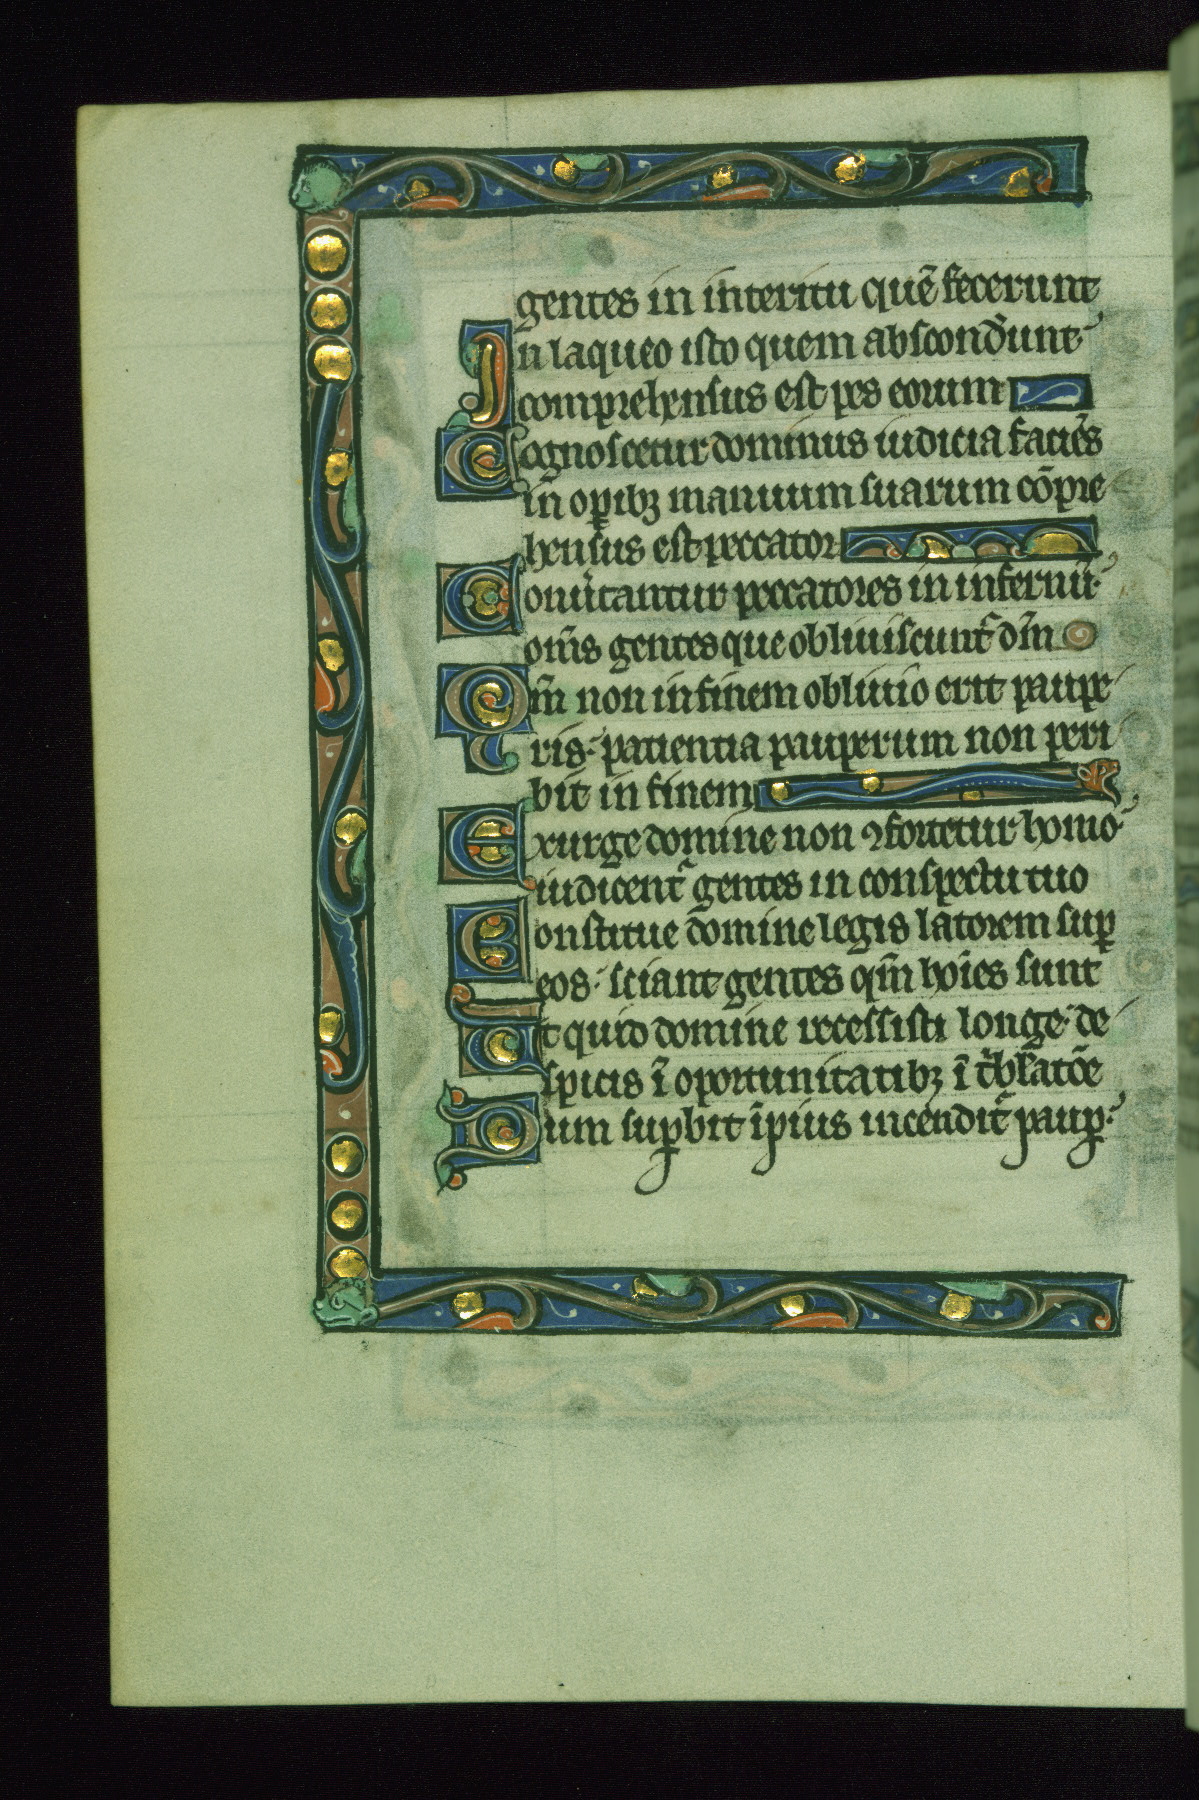 gentes in interitu quē fecerunt
In laqueo isto quem absconderunt
comprehensus est pes eorum
Cognoscetur dominus iudicia faciēs
in opibꝫ manuum suarum cōpre
hensus est peccator
Conuertantur peccatores in infernū
om̄s gentes que obliuiscunt᷑ dm̄
Qm̄ non in finem obliuio erit paupe
ris· patientia pauperum non peri
bit in finem
Exurge domine non ꝯfortetur homo
iudicent᷑ gentes in conspectu tuo
Constitue domine legis latorem suꝑ
eos· sciant gentes qm̄ hoīes sunt
Ut quid domine recessisti longe· de
spicis ī oportunitatibꝫ ī t᷑bl̄atōe
Dum suꝑbit īpius incendit᷑ pauꝑ·